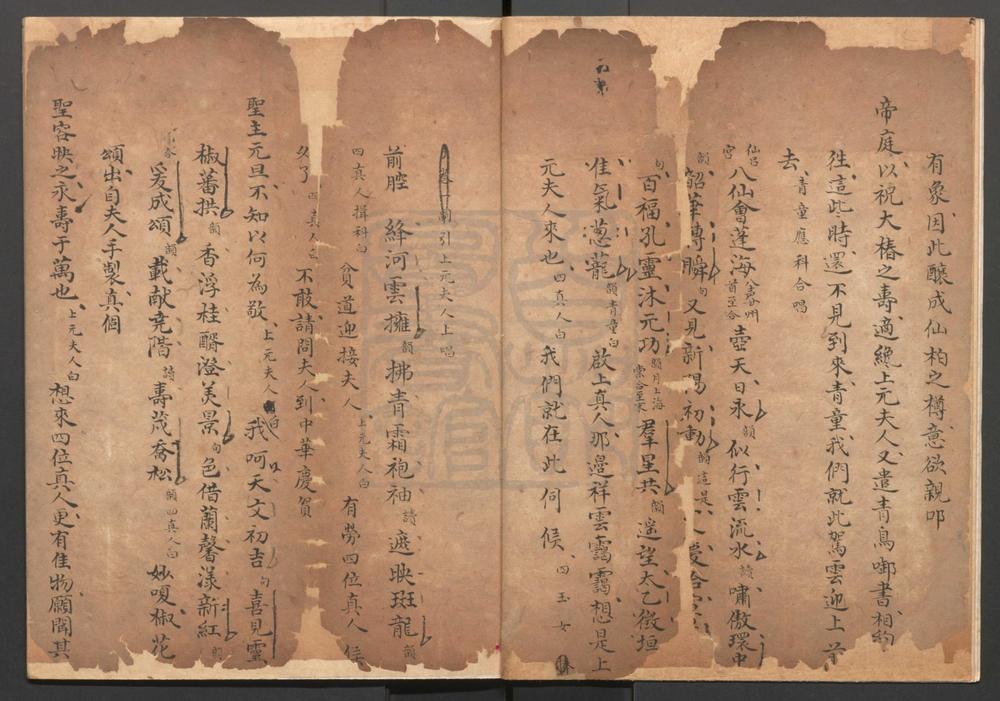 有象因此釀成仙柏之樽意欲親叩
帝庭以祝大椿之壽適纔上元夫人又遣青鳥啣書相約
徃這此時還不見到來青童我們就此駕雲迎上前
去青童應科合唱
仙呂宮八仙會蓬海八聲甘州首至合壺天日永韻似行雲流水讀嘯傲環中
韻韶華轉瞬句又見新陽初動韻這是
句百福孔靈沐元功韻月上海棠合至末羣星共韻遥望太乙薇垣
佳氣葱蘢韻青童白啟上真人那邊祥雲靄靄想是上
元夫人來也四真人白我們就在此伺候四玉女
引上元夫人上唱
前腔絳河雲擁韻拂青霜袍袖讀遮映斑龍韻
四真人揖科白貧道迎接夫人上元夫人白有勞四位真人候
久了四真人白不敢請問夫人到中華慶賀
聖主元旦不知以何為敬上元夫人白我呵天文初吉句喜見靈
椒蕃拱韻香浮桂醑澄美景句色借蘭馨漾新紅韻
爰成頌韻載獻堯階讀壽茂喬松韻四真人白妙嗄椒花
頌出自夫人手製真個
聖容映之永壽于萬也上元夫人白想來四位真人更有佳物願聞其